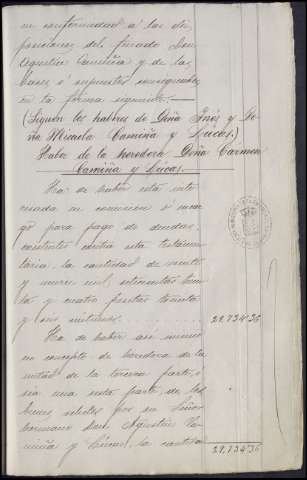 en conformidad á las dis-
posiciones del finado Don
Agustín Camiña y de las
bases ó supuestos consignados
en la forma siguiente.
(Siguen los haberes de Doña Inés y Do-
ña Micaela Camiña y Lucas.)
Haber de la heredera Doña Carmen
Camiña y Lucas.
Ha de haber esta inte-
resada en comisión ó encar-
go para pago de deudas
existentes contra esta testamen-
taria, la cantidad de veinte
y nueve mil, setecientas trein-
ta y cuatro pesetas treinta
y seis céntimos. 29.734'36
Ha de haber así mismo
en concepto de heredera de la
mitad de la tercera parte, ó
sea una sexta parte, de los
bienes relictos por su Señor
hermano Don Agustín Ca-
miña y Lucas, la cantidad
29.734'36